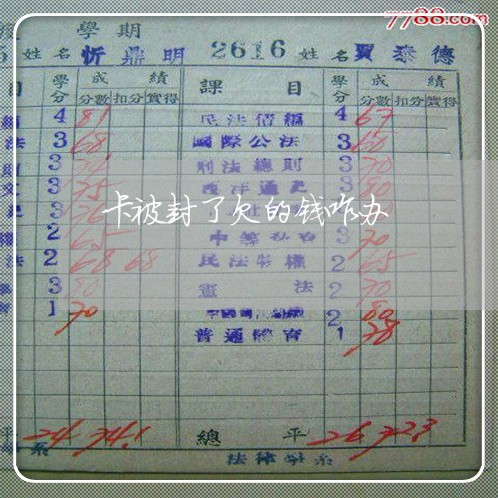 7788.com
學期
姓名 忻鼎明 2616 姓名 賈泰德
目 學分 成績 課目 學分 成績
分數 扣分 實得 分數 扣分 實得
4 81 民法債編 4 67
法 3 68 國際公法 3 60
3 刑法總則 3 70
3 75 西洋通史 3 80
3 76
卡被封了欠的钱咋办
2 65 3 70
法 2 68 68 民法物權 2 65
3 80 憲法 2 70
1 70 2 80
普通體育 1 78
平 24 74.1 總平 26 72.3
系 法律學系